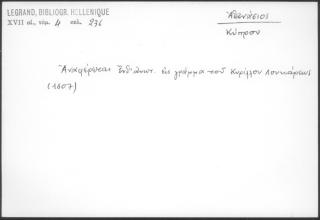 LEGRAND, BIBLIOGR. HELLENIQUE
XVII αἰ. τόμ. 4 σελ. 236
Ἀθανάσιος
Κύπρου
Ἀναφέρεται εἰς γράμμα τοῦ Κυρίλλου Λουκάρεως
(1607)